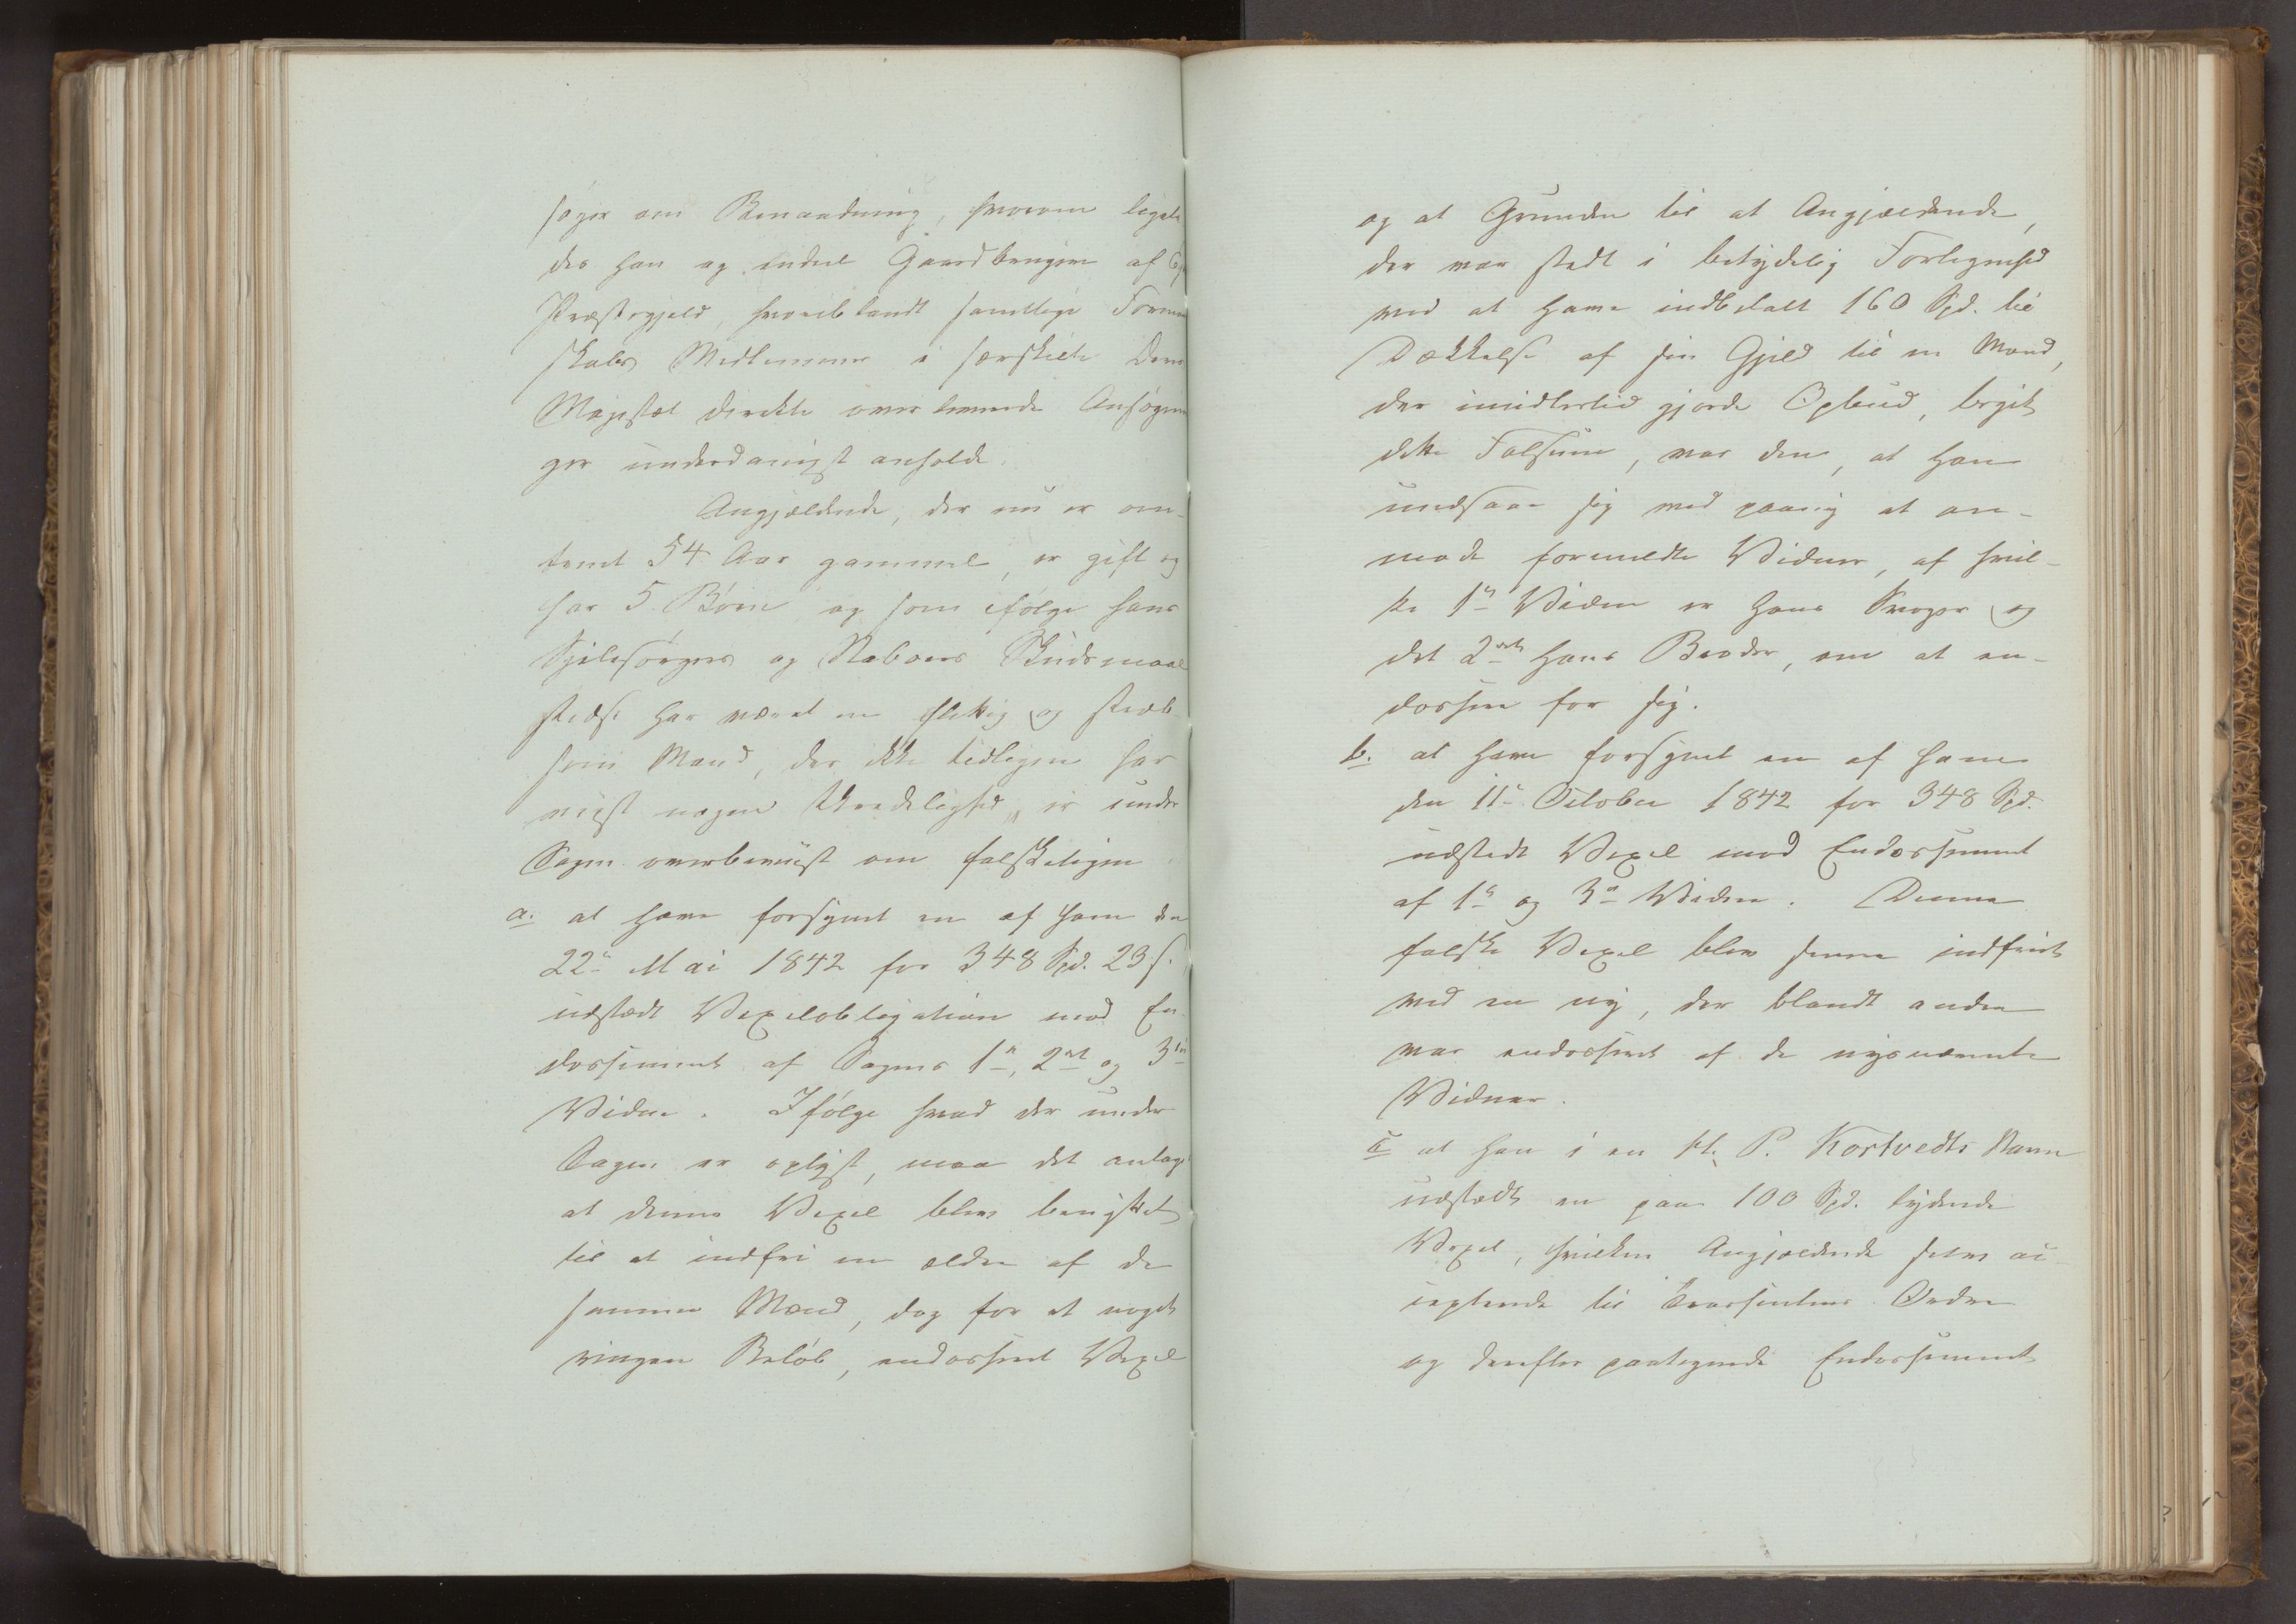 søger om Benaadning, hvorom ligele
des han og endeel Gaardbrugere af
Præstegjeld, hvoriblandt samtlige Forman
skabs Medlemmer i særskilte Deres
Majestæt direkte overleverede Ansøgnin
ger underdanigst anholde.
Angjældende, der nu er om-
trent 54 Aar gammel, er gift og
har 5 Børn og som ifølge hans
Sjelesørgers og Naboers Skudsmaal
stedse har været en flittig og stræb
som Mand, der ikke tidligere har
viist nogen Uredelighed, er under
Sagen overbeviist om falskeligen
a. at have forsynet en af ham den
22de Mai 1842 for 348 Spd. 23 s.
udstædt Vexelobligation med En-
dossement af Sagens 1ste, 2det og 3die
Vidne. Ifølge hvad der under
Sagen er oplyst, maa det antages
at denne Vexel blev benyttet
til at indfri en ældre af de
samme Mænd, dog for et noget
ringere Beløb, endosseret Vexel
og at Grunden til at Angjældende,
der var stedt i betydelig Forlegenhed
ved at have indbetalt 160 Spd. til
Dækkelse af sin Gjeld til en Mand,
der imidlertid gjorde Opbud, begik
dette Falsum, var den, at han
undsaae sig ved paany at an-
mode formeldte Vidner, af hvil-
ke 1ste Vidne er hans Svoger og
det 2det hans Broder, om at en-
dossere for sig.
b. at have forsynet en af ham
den 11te October 1842 for 348 Spd.
udstedt Vexel med Endossement
af 1ste og 3die Vidne. Denne
falske Vexel blev senere indfriet
ved en ny, der blandt andre
var endosseret af de nysnævnte
Vidner.
c at han i en P. Kostvedts Navn
udstædt en paa 100 Spd. lydende
Vexel, hvilken Angjældende selv ac-
cepterede til Trassentens Ordre
og derefter paategnede Endossement